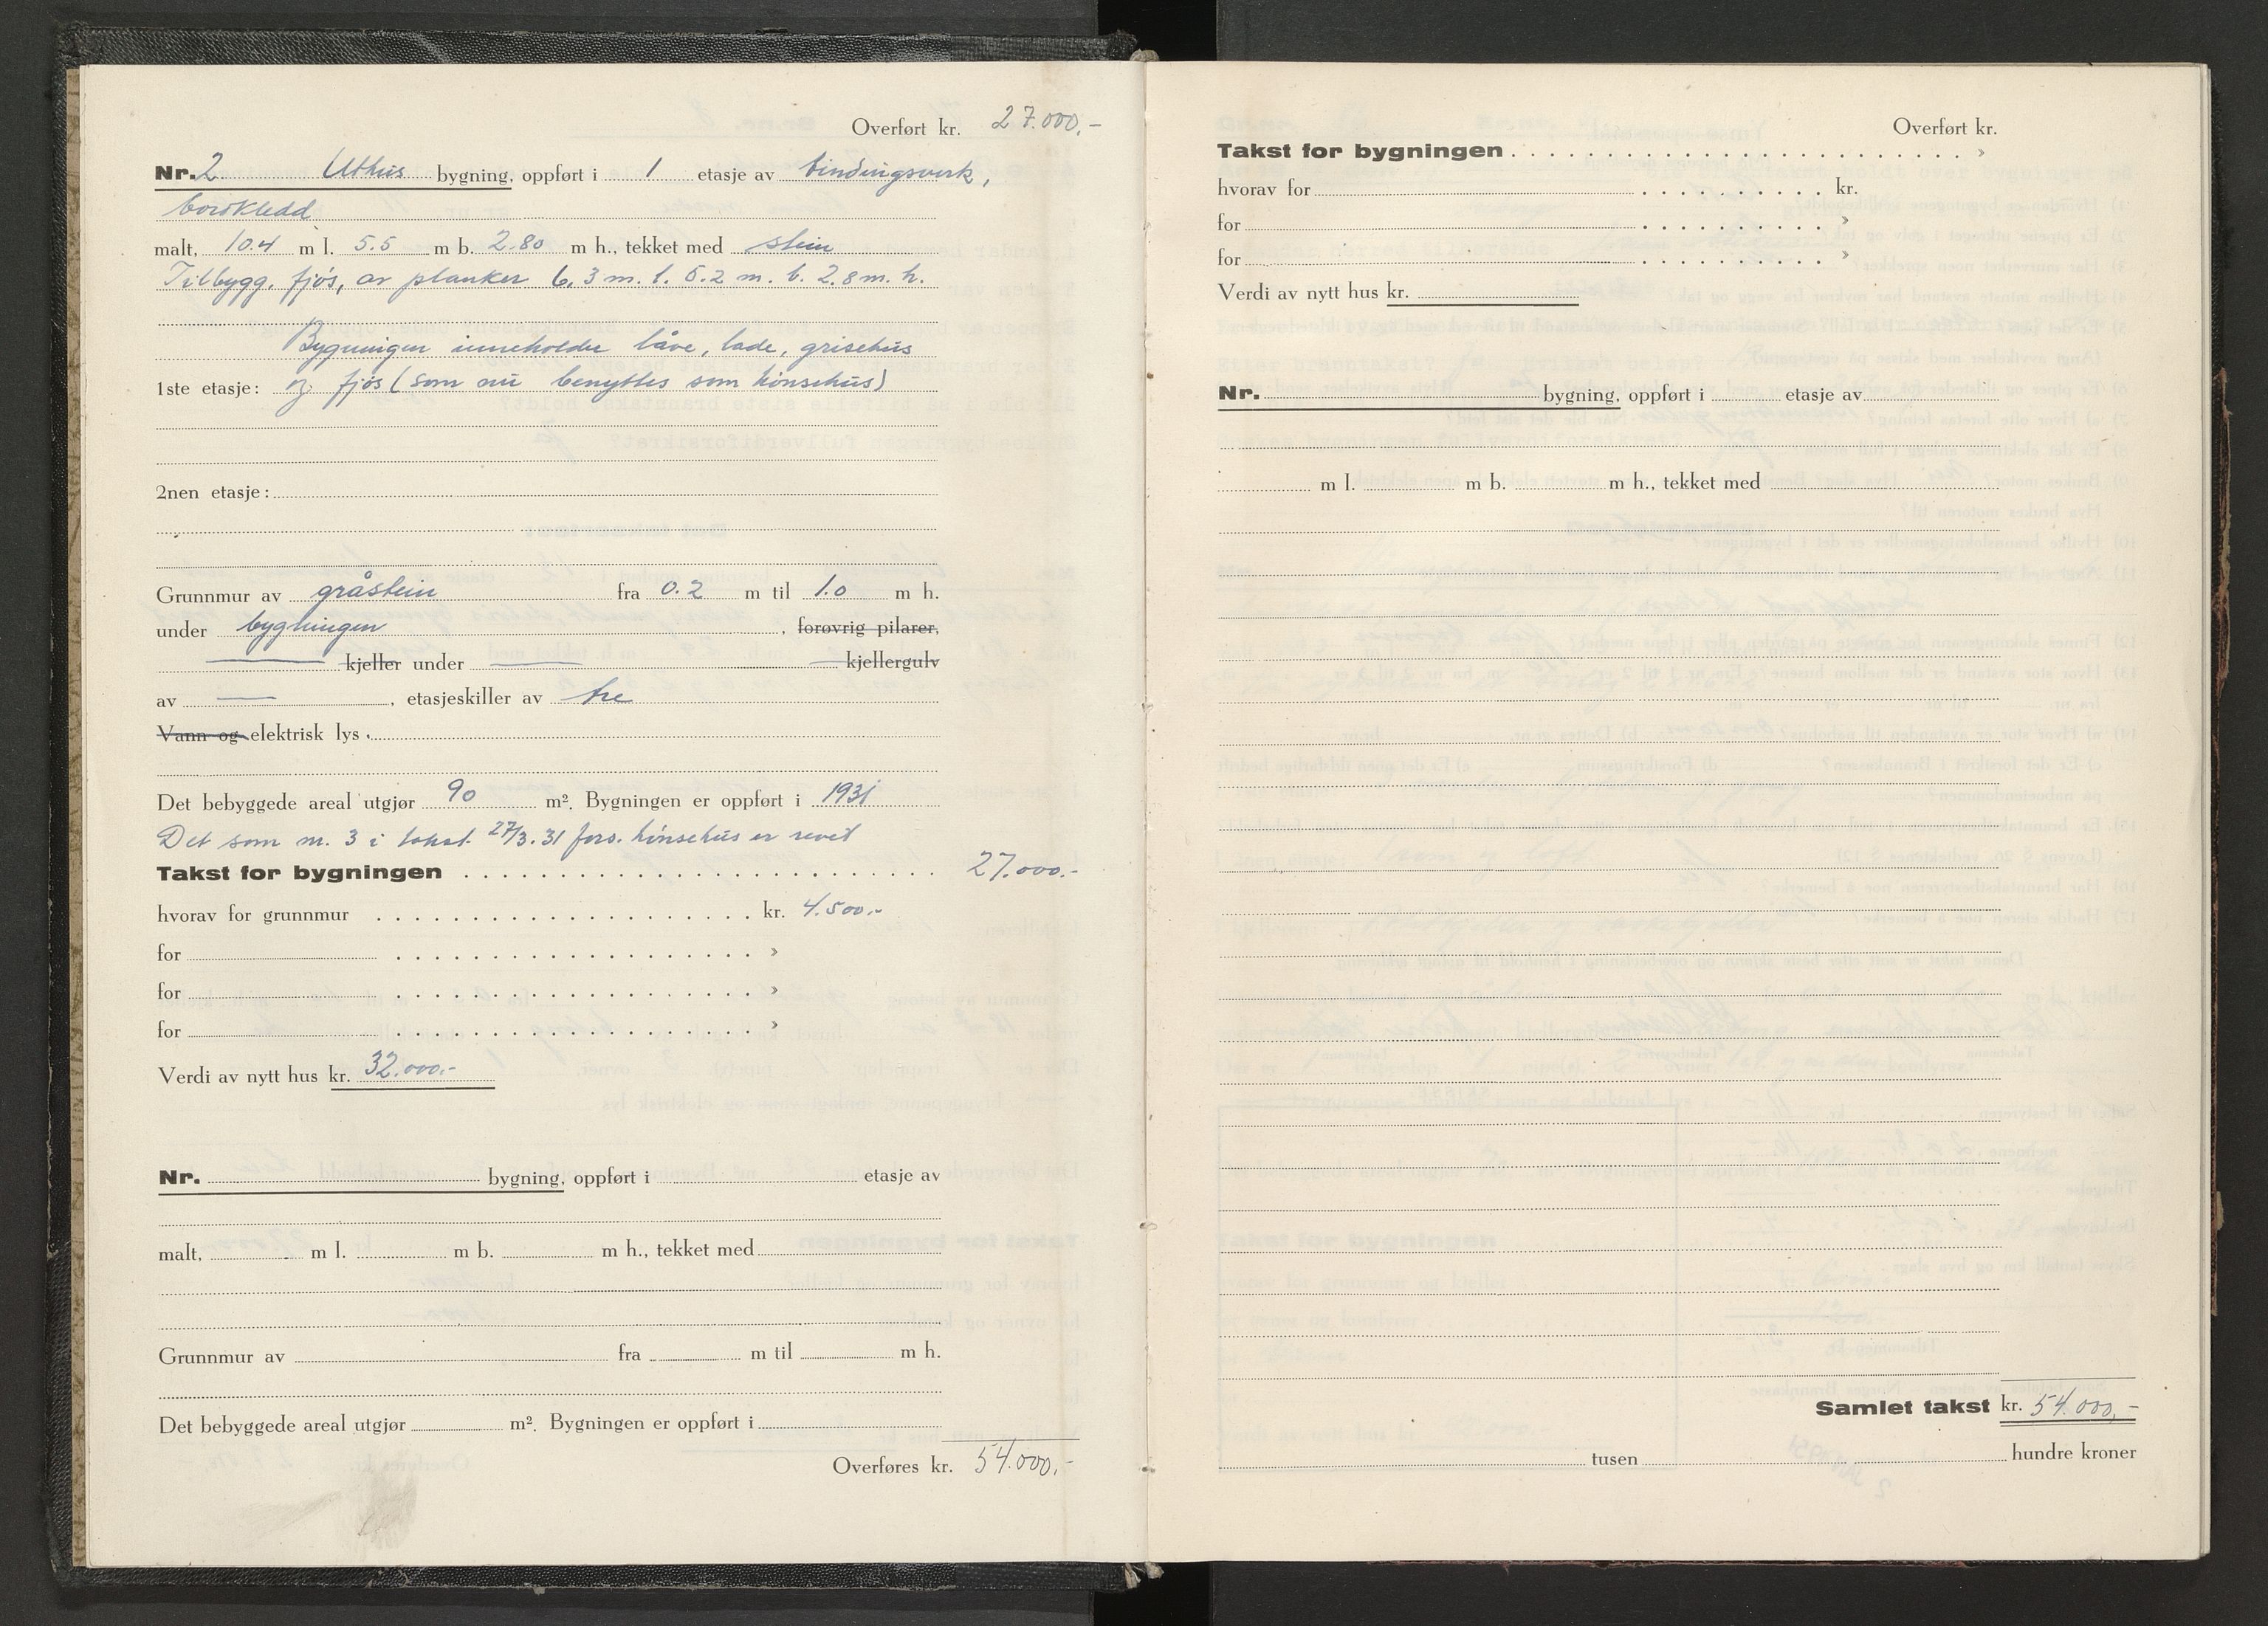 Overført kr. 27.000,-
Nr. 2 Uthus bygning, oppført i 1 etasje av bindingsverk,
bordkledd
malt, 10.4 m l. 5.5 m b. 2.80 m h., tekket med stein
Tilbygg, fjøs, av planker 6.3 m. l. 5.2 m. b. 2.8 m. h.
Bygningen inneholder låve, lade, grisehus
1ste etasje: og fjøs (som nu benyttes som hönsehus)
2nen etasje:
Grunnmur av gråstein fra 0.2 m til 1.0 m h.
under bygningen , forøvrig pilarer,
kjeller under kjellergulv
av , etasjeskiller av tre
Vann og elektrisk lys
Det bebyggede areal utgjør 90 m². Bygningen er oppført i 1931
Det som nr. 3 i takst 27/3.31 førs. hönsehus er revet
Takst for bygningen 27.000.-
hvorav for grunnmur kr. 4.500.-
for »
for »
for »
Verdi av nytt hus kr. 32.000.-
Nr. bygning, oppført i etasje av
malt, m l. m b. m h., tekket med
Grunnmur av fra m til m h.
Det bebyggede areal utgjør m². Bygningen er oppført i
Overføres kr. 54.000,-
Overført kr.
Takst for bygningen »
hvorav for kr.
for »
for »
Verdi av nytt hus kr.
Nr. bygning, oppført i etasje av
m l. m b. m h., tekket med
Samlet takst kr. 54.000,-
tusen hundre kroner